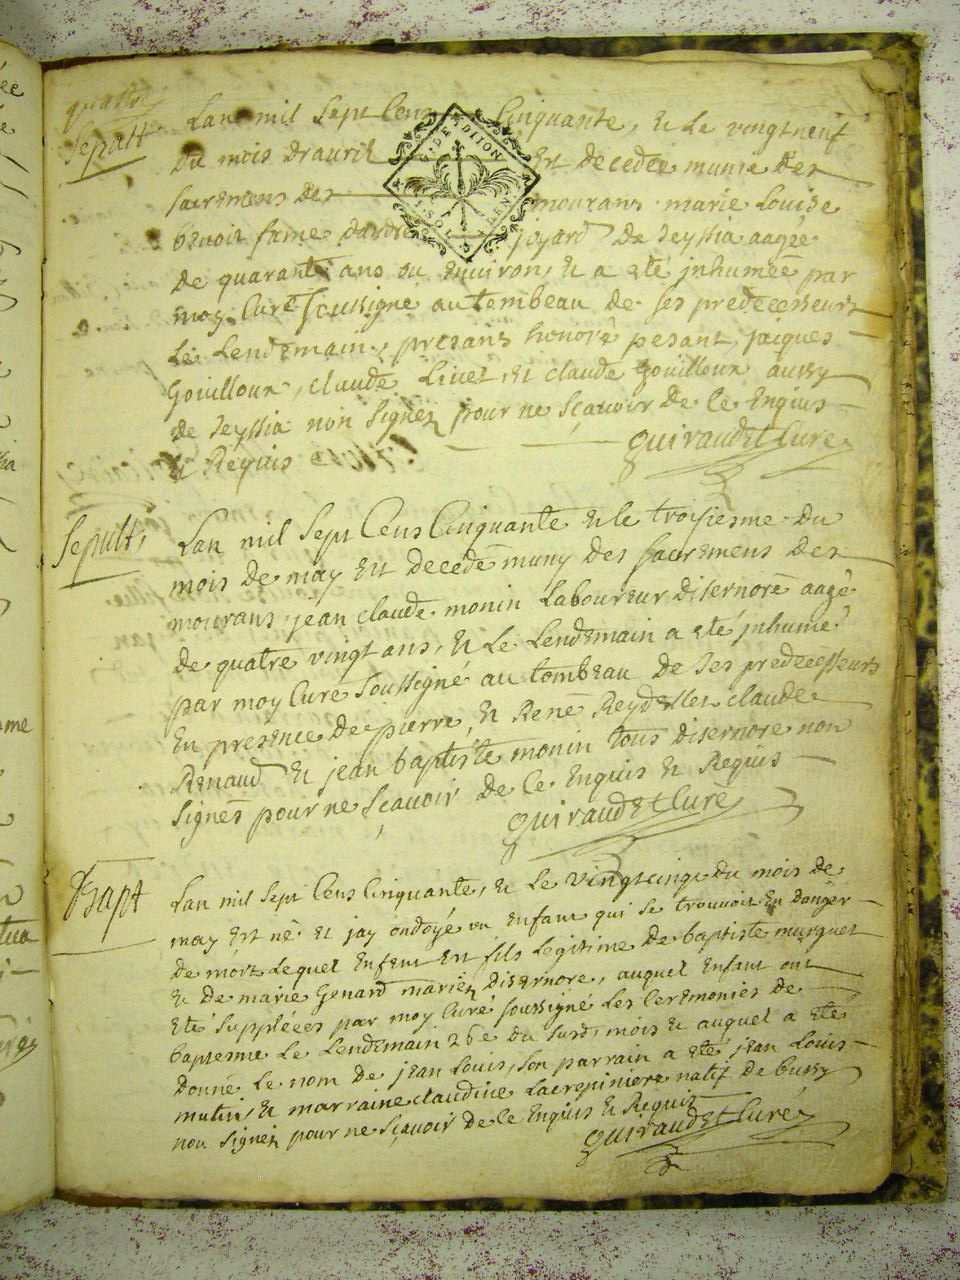 quatre
Sepult
Lan mil Sept Cens Cinquante, et Le vingtneuf
du mois dauril Est decedée munie des
sacremens des mourans marie Louise
benoit fame joyard de Seyssia aagée
de quarante ans ou Environ, et a Eté jnhumée par
moy Curé Soussigné au tombeau de ses predecesseurs
Le Lendemain, presans honoré pesant, jacques
Gouilloux, claude Livet, et claude Gouilloux aussy
de Seyssia non signez pour ne Sçavoir de Ce Enquis
et Requis
GUIRAUDET Curé
Sepult,
Lan mil Sept Cens Cinquante et le troisiesme du
mois de may Est decedé muny des sacremens des
mourans jean claude monin Laboureur disernore aagé
de quatre vingt ans, et Le Lendemain a eté jnhumé
par moy Curé soussigné au tombeau de ses predecesseurs
En presence de pierre, et René Reydellet claude
Renaud et jean baptiste monin tous disernore non
signés pour ne Sçavoir de Ce Enquis et Requis
GUIRAUDET Curé
Bapt
Lan mil Sept Cens Cinquante, et Le vingtcinq du mois de
may Est né et jay ondoyé un Enfant qui se trouvoit En danger
de mort Lequel Enfent Est fils Legitime de baptiste murguet
et de marie Genard mariez disernore, auquel Enfant ont
Eté Suppléées par moy Curé soussigné Les Ceremonies de
baptesme Le Lendemain 26e du susd, mois et auquel a eté
donné Le nom de jean Louis, son parrain a eté jean Louis
mutin, et marraine claudine Lacrepiniere natif de bussy
non signez pour ne Sçavoir de Ce Enquis et Requis
GUIRAUDET Curé